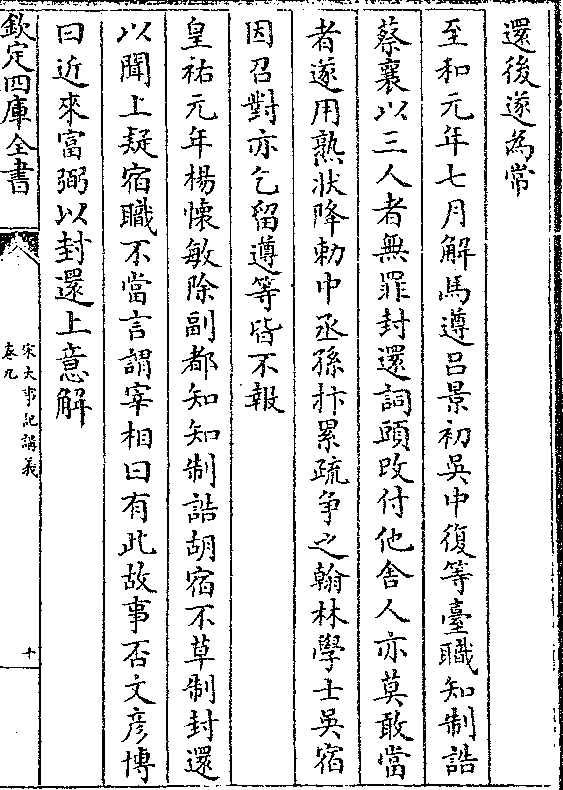 還後遂為常
至和元年七月解馬遵呂景初吳中復等臺職知制誥
蔡襄以三人者無罪封還詞頭改付他舍人亦莫敢當
者遂用熟狀降勅中丞孫抃累疏争之翰林學士吳宿
因召對亦乞留遵等皆不報
皇祐元年楊懷敏除副都知知制誥胡宿不草制封還
以聞上疑宿職不當言謂宰相曰有此故事否文彦博
曰近來富弼以封還上意解
欽定四庫全書
宋大事記講義
卷九
十